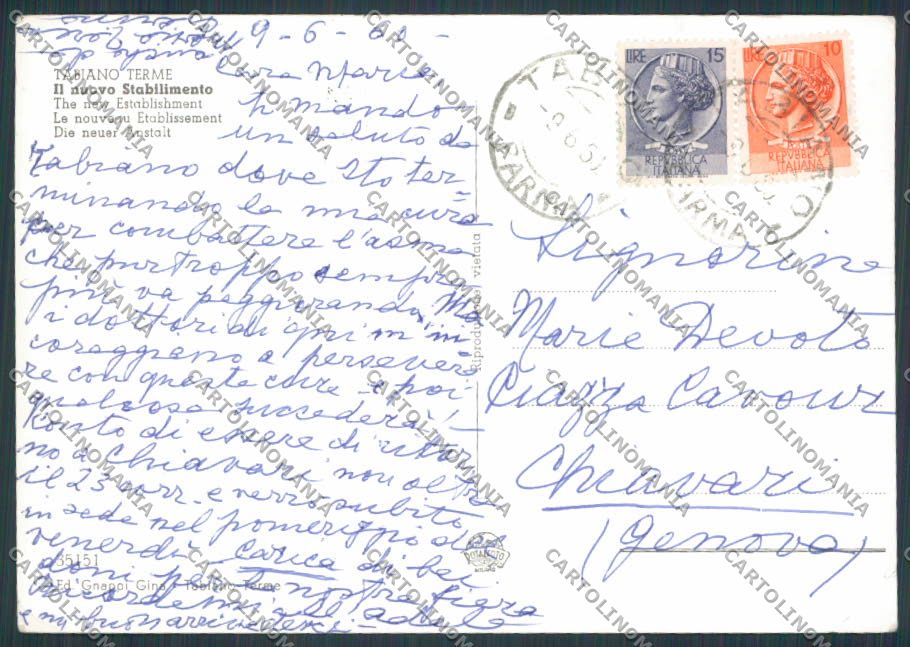 9-6-60-
TABIANO TERME
Il nuovo Stabilimento
The new Establishment
Le nouveau Etablissement
Die neuer Anstalt
Cara Marie
ti mando
un saluto da
Tabiano dove sto ter-
minando la mia cura
per combattere l'asma
che purtroppo sempre
più va peggiorando. Ma
i dottori di qui m'in
coraggiano a persevera
re con queste cure e poi
qualcosa succederà!
Conto di essere di ritor
no a Chiavari non oltre
il 23 corr. e verrò subito
in sede nel pomeriggio di
venerdì carica di bei
doni per la nostra fiera
e un buon arrivederci
35151
Ed. Gnappi Gina - Tabiano Terme
Riproduzione vietata
LIRE 15
REPVBBLICA
ITALIANA
LIRE 10
REPVBBLICA
ITALIANA
TABIANO
PARMA
Signorina
Marie Devoto
Piazza Cavour
Chiavari
(Genova)
CARTOLINOMANIA